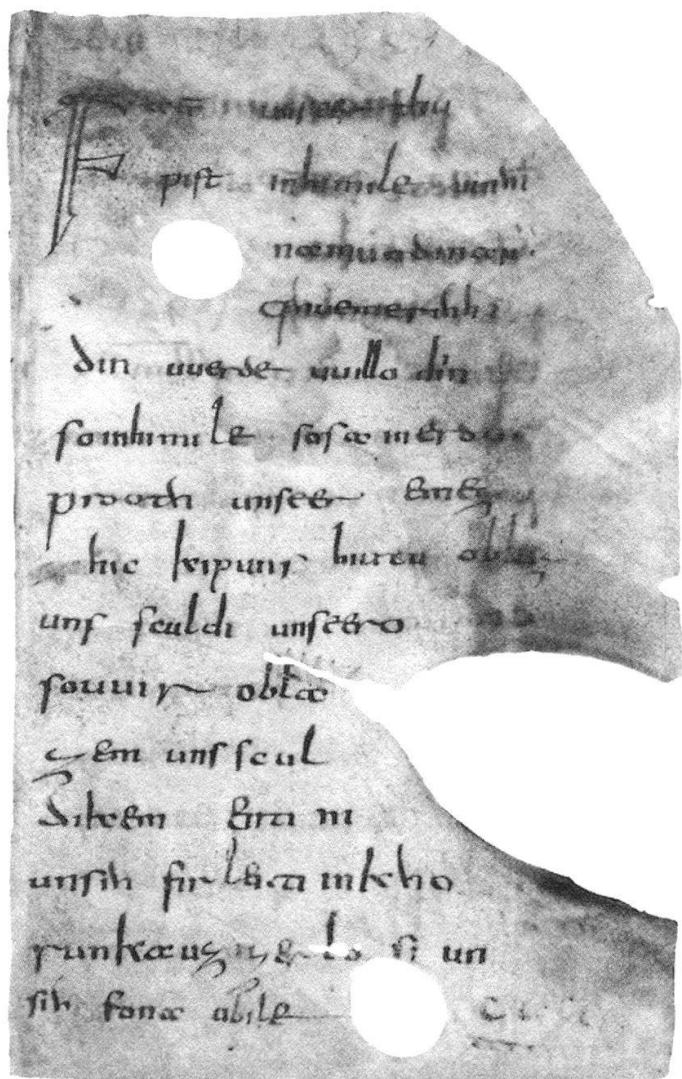 Fater unseer thu
pist in himile uuihi
namun dinan
qhueme rihhi
din uuerde uuillo diin
so in himile sosa in erdu
prooth unseer emez
hic kip uns hiutu oblaz
uns sculdi unseero
so uuir obla
zem uns scul
dikem enti ni
unsih firleiti in kho
runka uzzer losi un
sih fona ubile